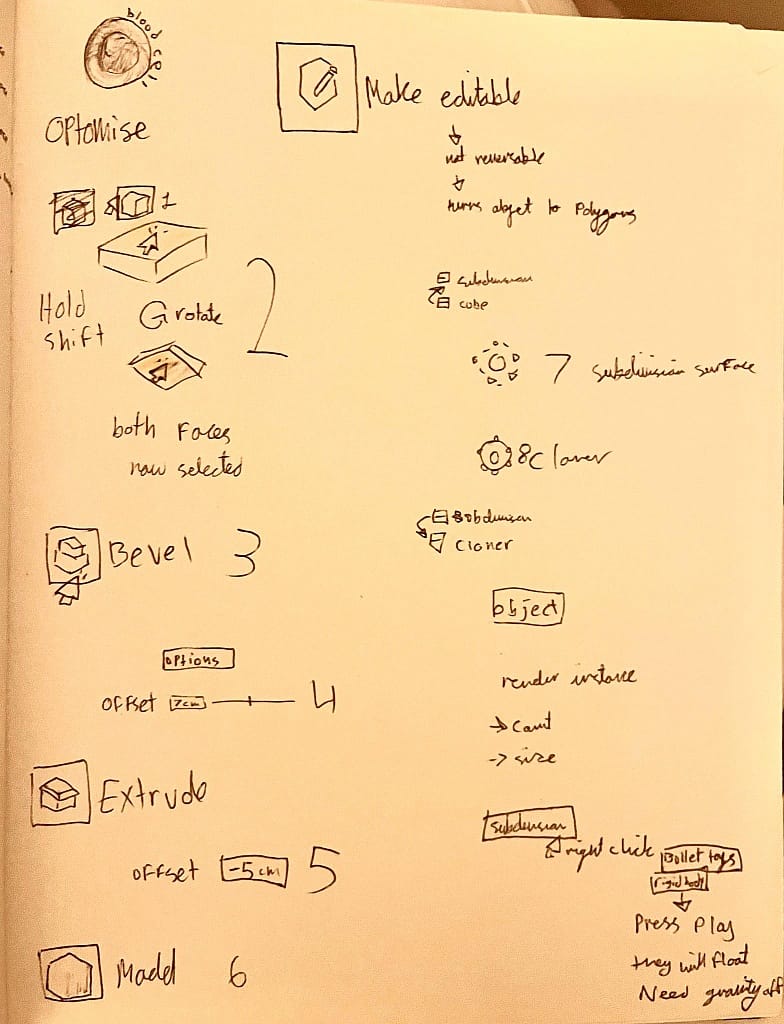 blood cell
Optomise
1
Hold shift
rotate
2
both Faces
now selected
Bevel 3
options
offset 7cm 4
Extrude
offset -5cm 5
Model 6
Make editable
not reversable
turns object to Polygons
subdivision
cube
7 subdivision surface
8 Cloner
subdivision
Cloner
object
render instance
→ count
→ size
subdivision
right click
Bullet tags
rigid body
Press Play
they will float
Need gravity off